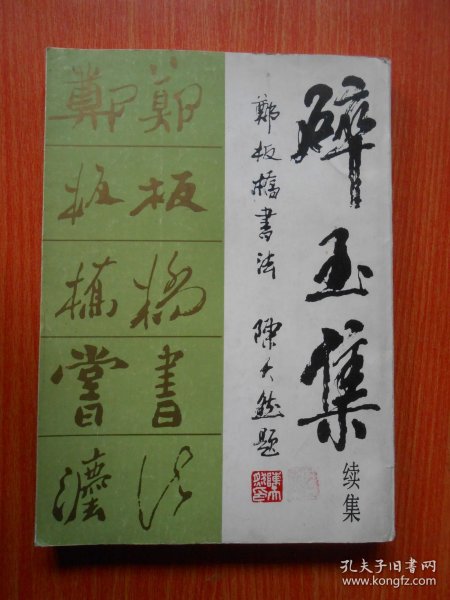 碎玉集
续集
鄭板橋書法 陳天然題
鄭板橋書法
鄭板橋書灋
孔夫子旧书网
www.kongfz.com